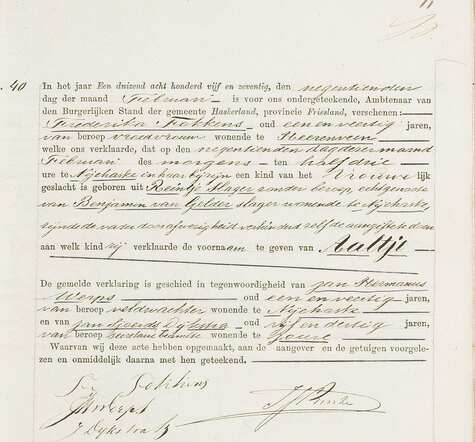 11
40
In het jaar Een duizend acht honderd vijf en zeventig, den negentienden
dag der maand Februari is voor ons ondergeteekende, Ambtenaar van
den Burgerlijken Stand der gemeente Haskerland, provincie Friesland, verschenen:
Frederika Fokkens oud een en veertig jaren,
van beroep vroedvrouw wonende te Heerenveen
welke ons verklaarde, dat op den negentienden dag dezer maand
Februari des morgens ten half drie
ure te Nijehaske in haar bijzijn een kind van het Vrouwelijk
geslacht is geboren uit Reintje Slager zonder beroep, echtgenoote
van Benjamin van Gelder slager wonende te Nijehaske
zijnde de vader door afwezigheid verhinderd zelf de aangifte te doen
aan welk kind zij verklaarde de voornaam te geven van Aaltje
De gemelde verklaring is geschied in tegenwoordigheid van Jan Hermanus
Werps oud een en veertig jaren,
van beroep veldwachter wonende te Nijehaske
en van Jan Sjoerds Dykstra oud vijf en dertig jaren,
van beroep wonende te Joure
Waarvan wij deze acte hebben opgemaakt, die aan de aangever en de getuigen voorgele-
zen en onmiddelijk daarna met hen geteekend.
Fokkens
JH Werps
J Dykstra